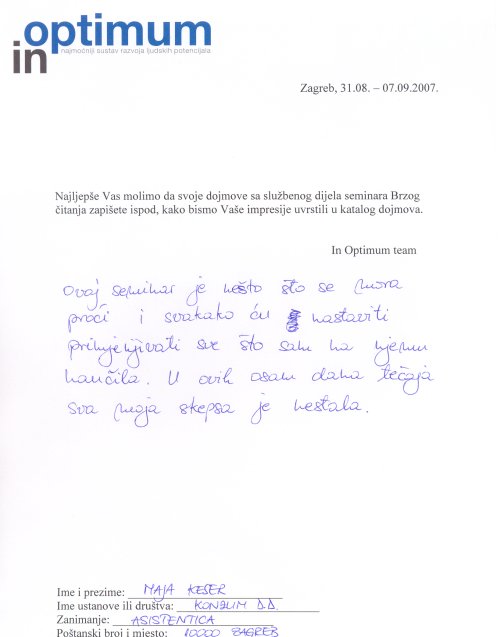 in optimum
najmoćniji sustav razvoja ljudskih potencijala
Zagreb, 31.08. – 07.09.2007.
Najljepše Vas molimo da svoje dojmove sa službenog dijela seminara Brzog
čitanja zapišete ispod, kako bismo Vaše impresije uvrstili u katalog dojmova.
In Optimum team
Ovaj seminar je nešto što se mora
proći i svakako ću nastaviti
primjenjivati sve što sam na njemu
naučila. U ovih osam dana tečaja
sva moja skepsa je nestala.
Ime i prezime: MAJA KESER
Ime ustanove ili društva: KONZUM D.D.
Zanimanje: ASISTENTICA
Poštanski broj i mjesto: 10000 ZAGREB